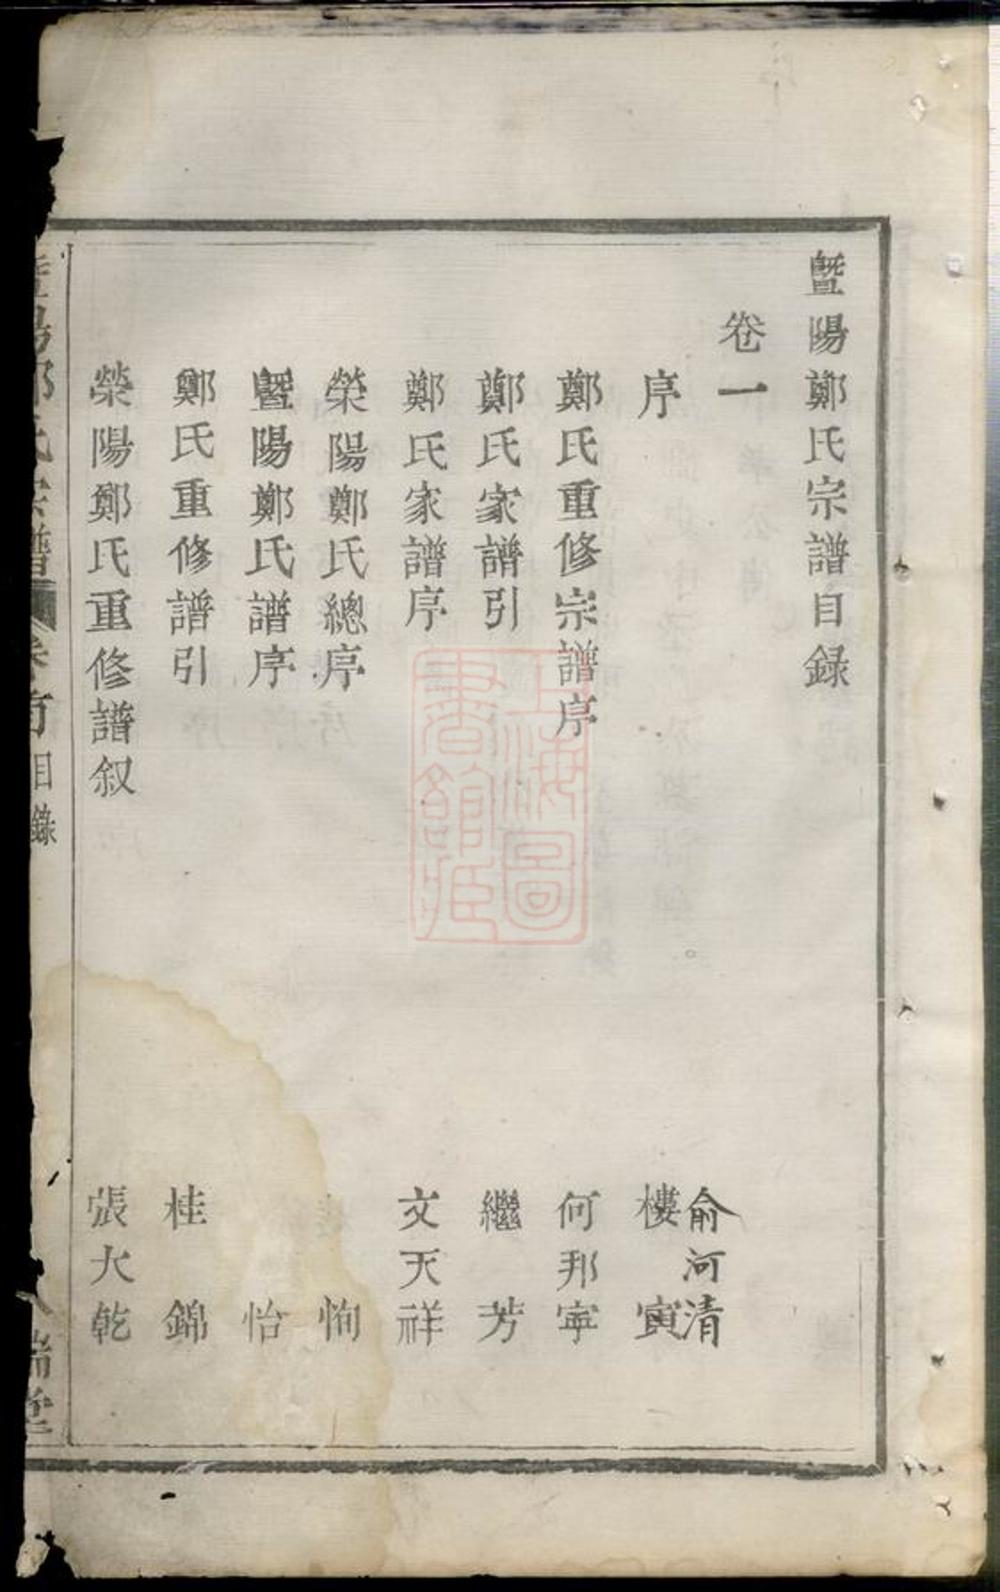 暨陽鄭氏宗譜目錄
卷一
序 俞河清 樓寅
鄭氏重修宗譜序 何邦寧
鄭氏家譜引 繼芳
鄭氏家譜序 文天祥
滎陽鄭氏總序 恂
暨陽鄭氏譜序 怡
鄭氏重修譜引 桂錦
滎陽鄭氏重修譜叙 張大乾
暨陽鄭氏宗譜 卷首 目錄 瑞堂
上海圖書館藏